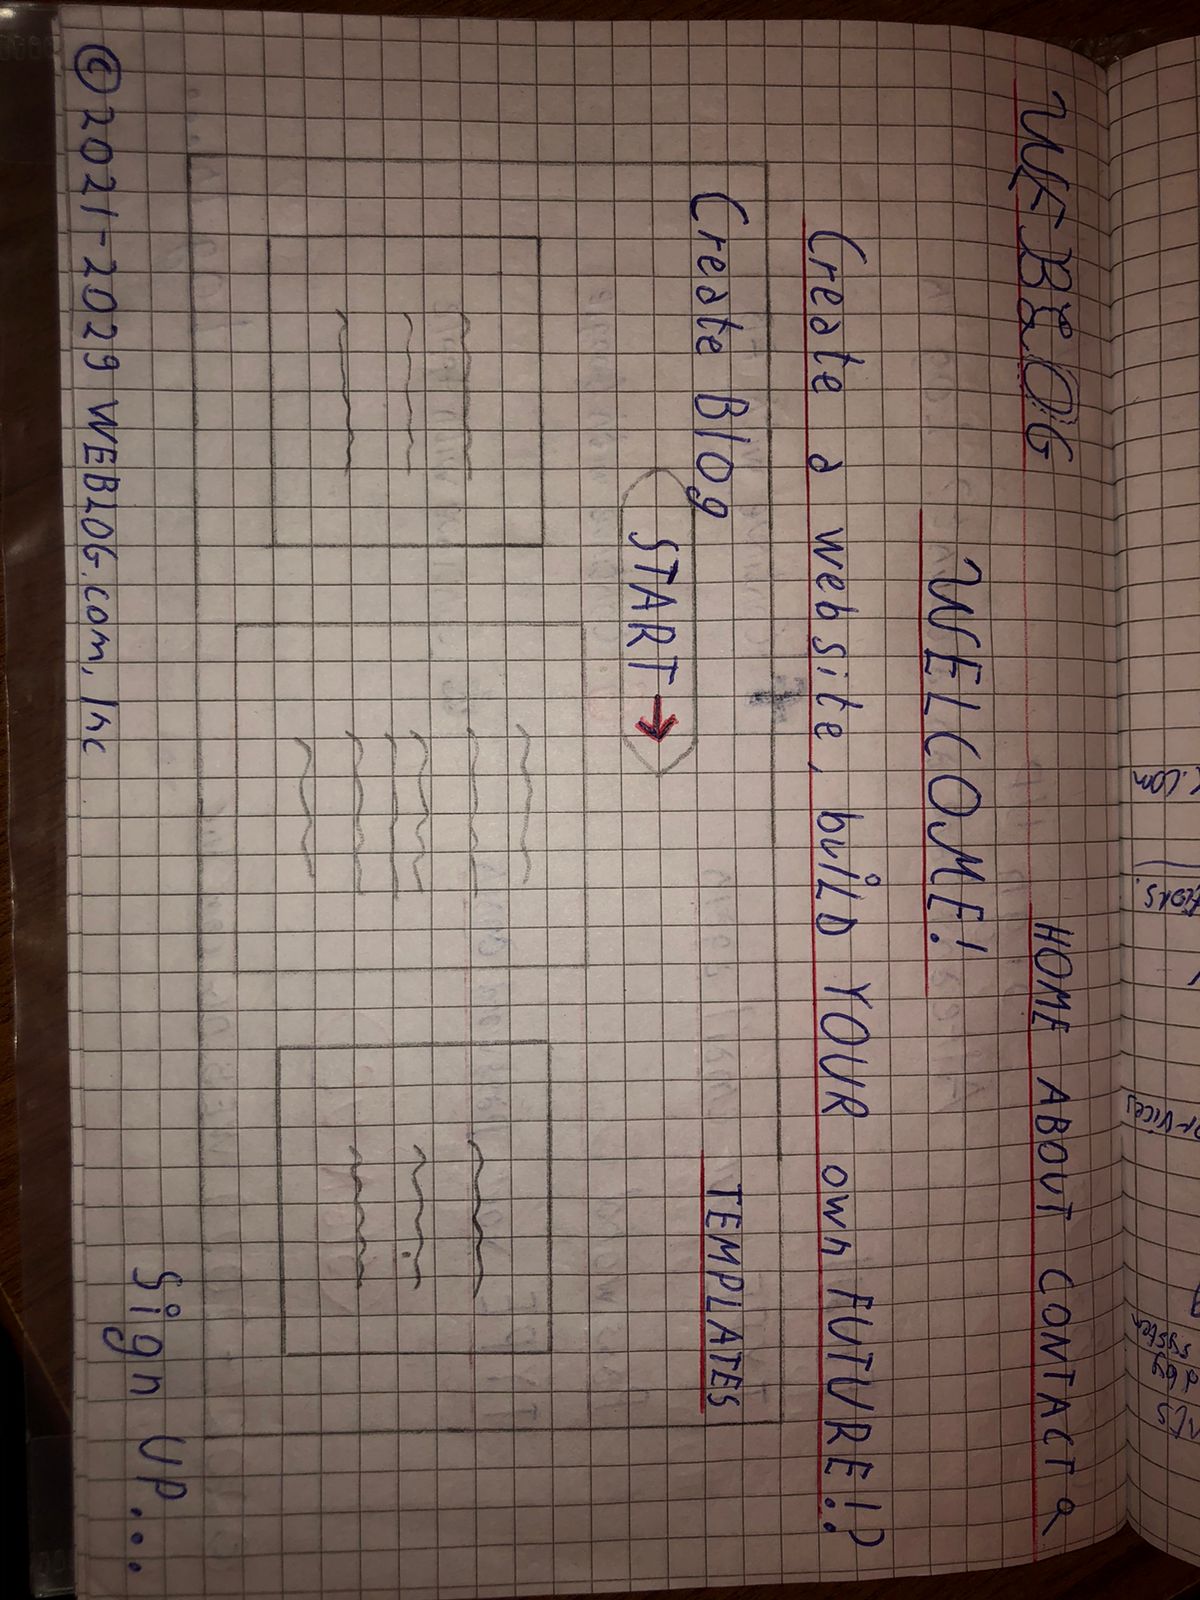 WEBLOG HOME ABOUT CONTACT
WELCOME!
Create a website, buiLD YOUR own FUTURE!?
Create Blog TEMPLATES
START →
Sign UP...
© 2021-2029 WEBLOG.com, Inc